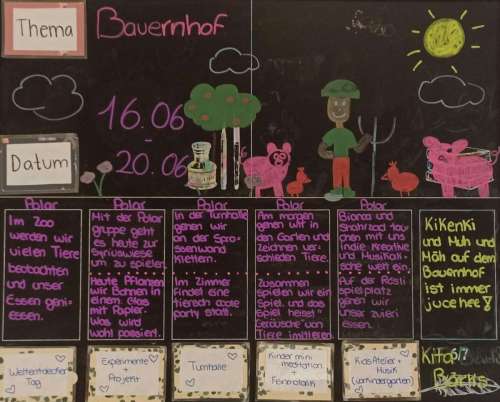 Thema
Bauernhof
16.06
-
20.06
Datum
Polar
Im Zoo
werden wir
vielen Tiere
beobachten
und unser
Essen geni-
essen.
Polar
Mit der Polar
gruppe geht
es heute zur
Syriuswiese
um zu spielen.
Heute Pflanzen
wir Bohnen in
einem Glas
mit Papier.
Was wird
wohl passiert.
Polar
In der Turnhalle
gehen wir
an der Spro-
ssenwand
klettern.
Im Zimmer
findet eine
tierisch coole
party statt.
Polar
Am morgen
gehen wir in
den Garten und
zeichnen ver-
schieden Tiere.
Zusammen
spielen wir ein
Spiel und das
Spiel heisst
Geräusche von
Tiere imitieren
Polar
Bianca und
tau
chen mit uns
in die kreative
und Musikali-
sche welt ein.
Auf der Rösli
spielplatz
gehen wir
unser zvieri
essen.
KiKeriKi
und Muh und
Mäh auf dem
Bauernhof
ist immer
juchee!
Weltentdecker
Tag
Experimente
+
Projekt
Turnhalle
Kinder mini
meditation
+
Feinmotorik
Kids Atelier +
Musik
(vorkindergarten)
KiTa